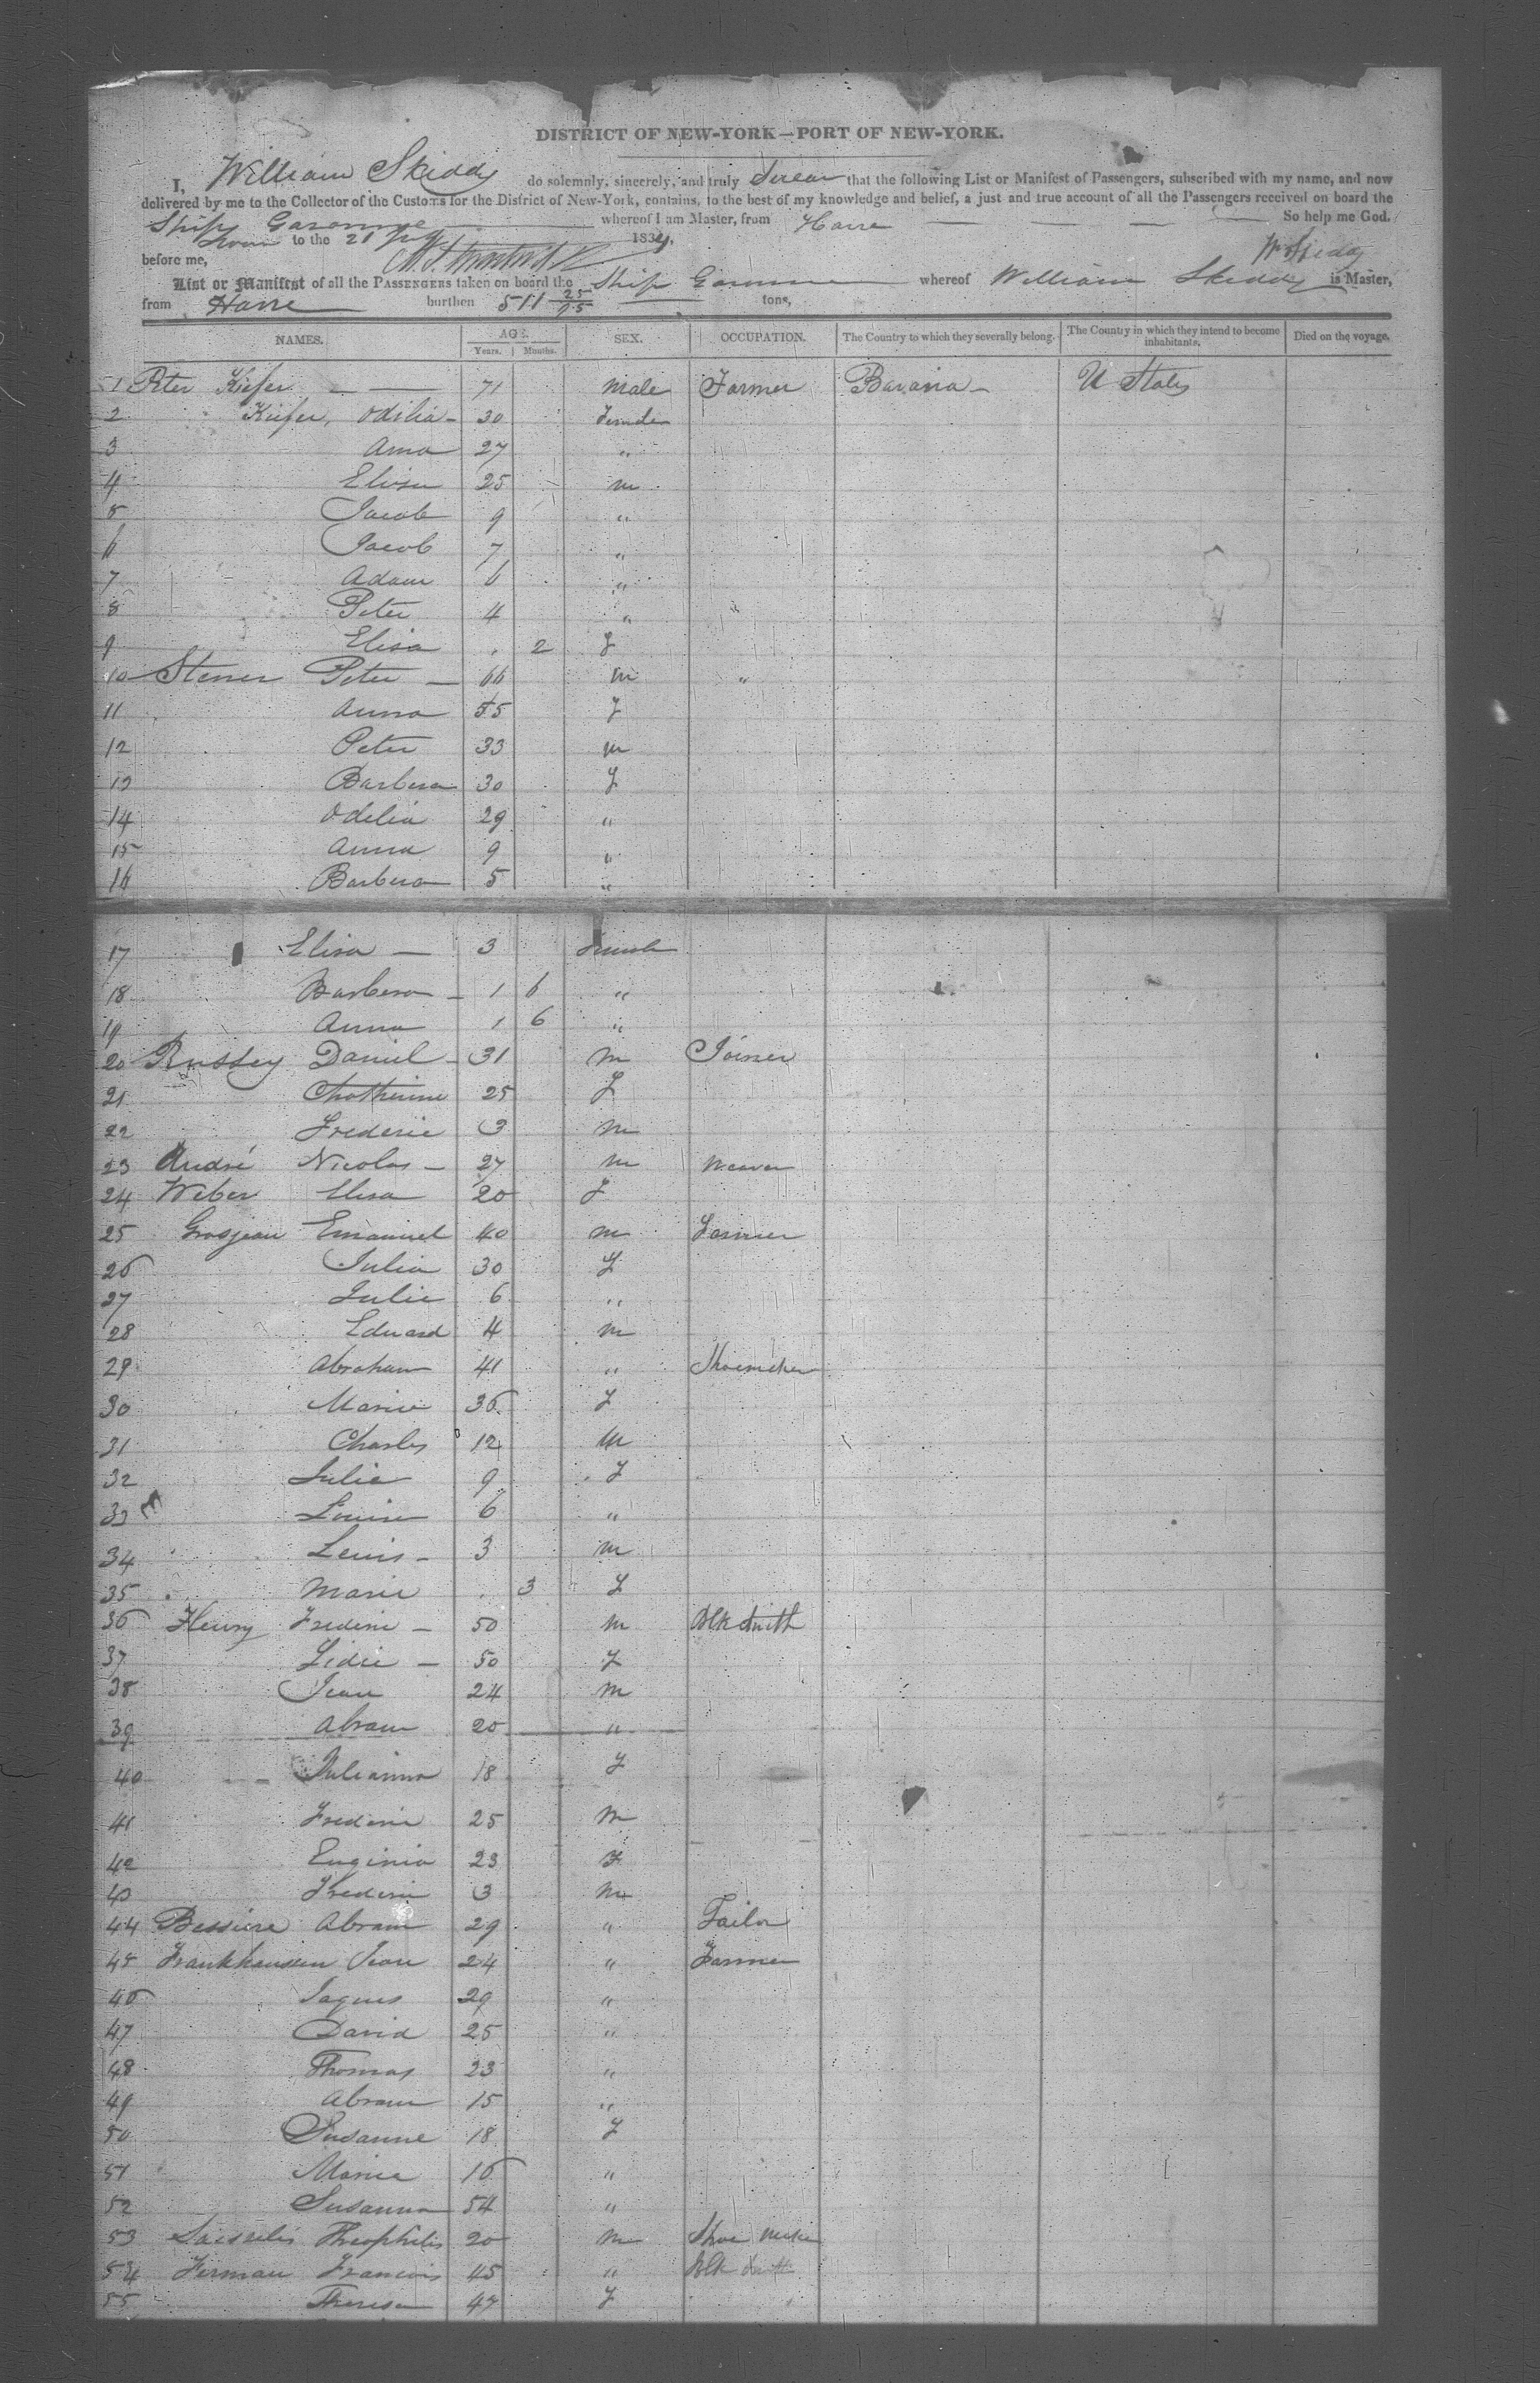 DISTRICT OF NEW-YORK—PORT OF NEW-YORK.
I, William Skiddy do solemnly, sincerely, and truly swear that the following List or Manifest of Passengers, subscribed with my name, and now
delivered by me to the Collector of the Customs for the District of New-York, contains, to the best of my knowledge and belief, a just and true account of all the Passengers received on board the
Ship Garonne whereof I am Master, from Havre So help me God.
to the 21 1834.
before me, W Skiddy
List or Manifest of all the PASSENGERS taken on board the Ship Garonne whereof William Skiddy is Master,
from Havre burthen 511 25/95 tons,
NAMES. AGE. SEX. OCCUPATION. The Country to which they severally belong. The Country in which they intend to become inhabitants. Died on the voyage.
Years. Months.
1 Peter Kiefer 71 Male Farmer Bavaria U States
2 Kiefer, Odilia 30 Female
3 Anna 27 "
4 25 m
5 Jacob 9 "
6 Jacob 7 "
7 Adam 6 "
8 Peter 4 " "
9 Elisa . 2 F
10 Peter 66 m "
11 Anna 55 F
12 Peter 33 m
13 Barbera 30 F
14 Odelia 29 "
15 Anna 9 "
16 Barbera 5 "
17 Elisa 3 Female
18 Barbera 1 6 "
19 Anna 1 6 "
20 Russey Daniel 31 m Joiner
21 Chatherine 25 F
22 Frederic 3 m
23 André Nicolas 27 m Weaver
24 Weber Elisa 20 F
25 Grosjean Emanuel 40 m Farmer
26 Julia 30 F
27 Julie 6 "
28 Edward 4 m
29 Abraham 41 " Shoemaker
30 Marie 36 F
31 Charles 12 m
32 Julie 9 F
33 Louise 6 "
34 Lewis 3 m
35 Marie . 3 F
36 Henry Frederic 50 m Blk Smith
37 Lidie 50 F
38 Jean 24 m
39 Abram 20 "
40 Julianna 18 F
41 Frederic 25 m
42 Euginia 23 F
43 Frederic 3 m
44 Bessiere Abram 29 " Tailor
45 Frankhausen Jean 24 " Farmer
46 Jaques 29 "
47 David 25 "
48 Thomas 23 "
49 Abram 15 "
50 Susanne 18 F
51 Maria 16 "
52 Susanna 54 "
53 Theophilis 20 m Shoe maker
54 Ferman Francois 45 " Blk Smith
55 Theresa 47 F